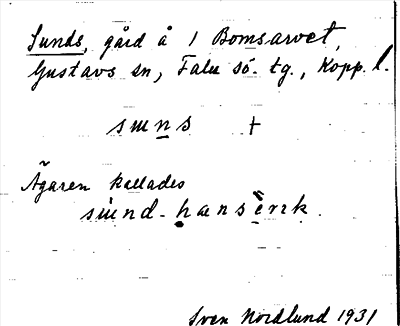 Sunds, gård å 1 Bomsarvet,
Gustavs sn, Falu sö. tg., Kopp. l.
sɯns +
Ägaren kallades
sɯnd-hansērɪk.
Sven Nordlund 1931